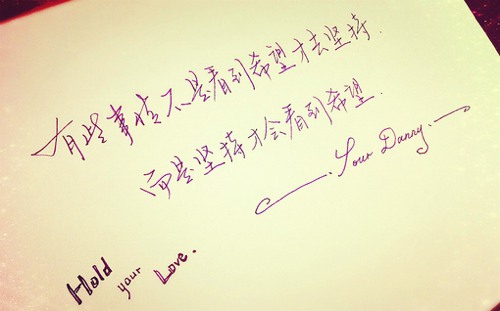 有些事情不是看到希望才去坚持.
而是坚持才会看到希望.
Your Danny.
Hold your Love.